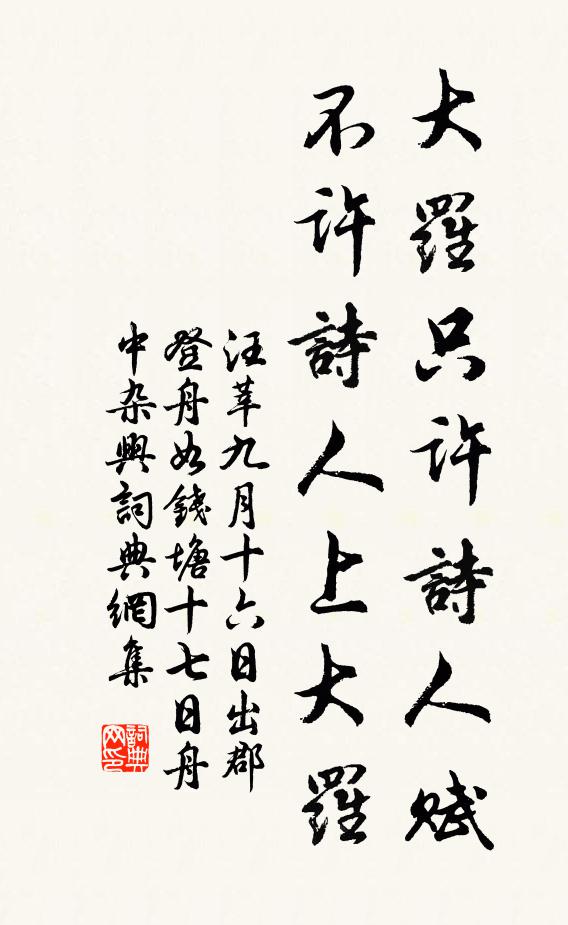 大羅只許詩人賦
不許詩人上大羅
汪莘九月十六日出郡
登舟如錢塘十七日舟
中杂興詞典網集
詞典
网印